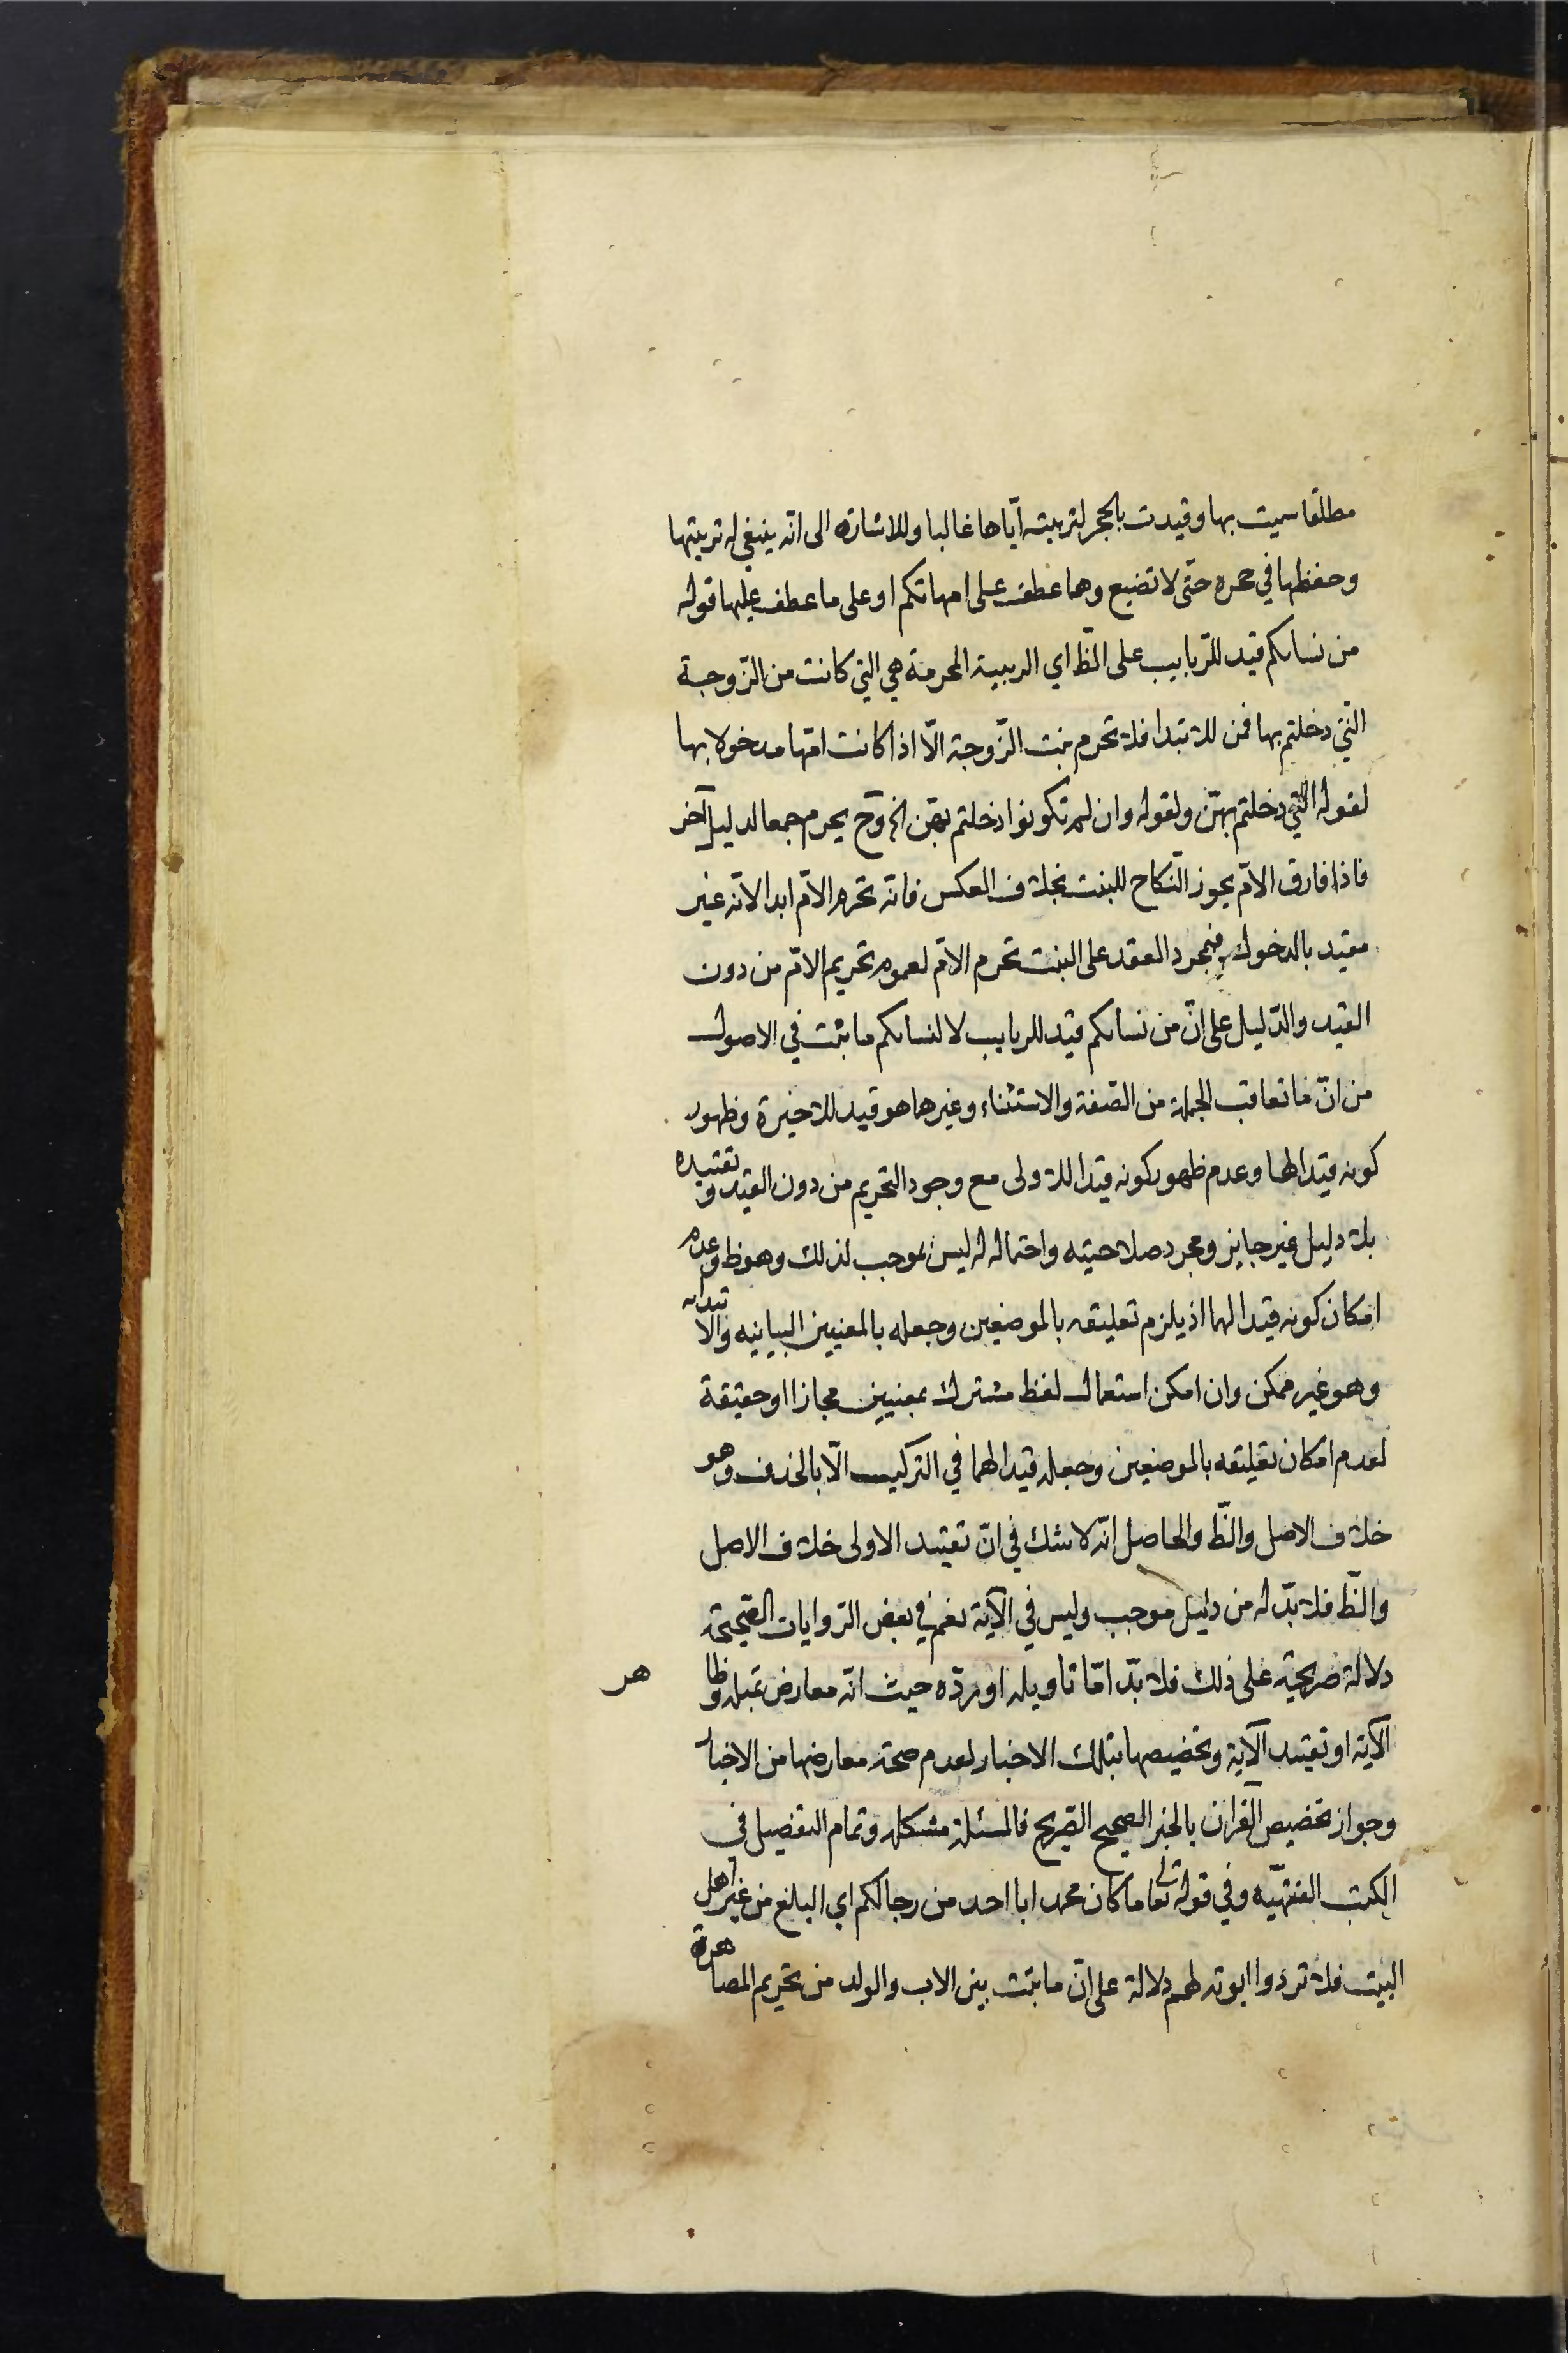 مطلقا سميت بها وقيدت بالحجر لتربيته اياها غالبا وللاشارة الى انّه ينبغي له تربيتها
وحفظها في حجره حتّى لا تضيع وهما عطف على امهاتكم او على ما عطف عليها قوله
من نسائكم قيد للرّبايب على الظّ اي الربيبة المحرمة هي التي كانت من الزّوجة
الّتي دخلتم بها فمن للابتدا فلا تحرم بنت الزّوجة الّا اذا كانت امّها مدخولا بها
لقوله اللّتي دخلتم بهنّ ولقوله وان لم تكونوا دخلتم بهنّ الخ وح يحرم جمعا لدليل آخر
فاذا فارق الامّ يجوز النّكاح للبنت بخلاف العكس فانّه تحرم الامّ ابدا لانّه غير
مقيد بالدخول فبمجرد العقد على البنت تحرم الامّ لعموم تحريم الامّ من دون
القيد والدّليل على انّ من نسائكم قيد للربايب لا لنسائكم ما ثبت في الاصول
من انّ ما تعاقب الجملة من الصّفة والاستثناء وغيرهما هو قيد للاخيرة وظهور
كونه قيدا لها وعدم ظهور كونه قيدا للاولى مع وجود التحريم من دون القيد وتقييده
بلا دليل غير جايز ومجرد صلاحيته واحتماله له ليس بموجب لذلك وهو ظ وعدم
امكان كونه قيدا لهما اذ يلزم تعليقه بالموضعين وجعله بالمعنيين البيانيه والابتدائيه
وهو غير ممكن وان امكن استعمال لفظ مشترك بمعنيين مجازا او حقيقة
لعدم امكان تعليقه بالموضعين وجعله قيدا لهما في التركيب الّا بالحذف وهو
خلاف الاصل والظّ والحاصل انّه لا شك في انّ تقييد الاولى خلاف الاصل
والظّ فلا بدّ له من دليل موجب وليس في الآية نعم في بعض الرّوايات الصّحيحة
دلالة صريحة على ذلك فلا بدّ امّا تاويله او ردّه حيث انّه معارض بمثله وظاهر
الآية او تقييد الآية وتخصيصها بتلك الاخبار لعدم صحة معارضها من الاخبار
وجواز تخصيص القرآن بالخبر الصحيح الصّريح فالمسئلة مشكلة وتمام التفصيل في
الكتب الفقهيّة وفي قوله تعالى ما كان محمد ابا احد من رجالكم اي البالغ من غير اهل
البيت فلا تردوا ابوته لهم دلالة على انّ ما ثبت بين الاب والولد من تحريم المصاهرة